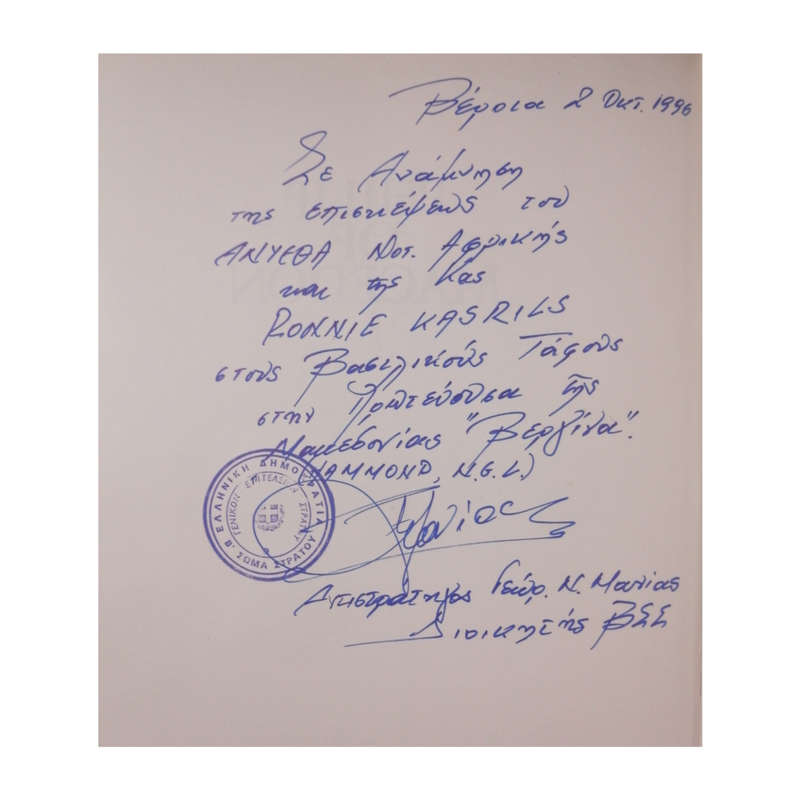 Βέροια 2 Οκτ. 1996
Σε Ανάμνηση
της επισκέψεως του
ΑΝΥΕΘΑ Νοτ. Αφρικής
και της Κας
RONNIE KASRILS
στους Βασιλικούς Τάφους
στην Πρωτεύουσα της
Μακεδονίας "Βεργίνα".
(HAMMOND, N.G.L.)
ΕΛΛΗΝΙΚΗ ΔΗΜΟΚΡΑΤΙΑ
ΓΕΝΙΚΟΝ ΕΠΙΤΕΛΕΙΟΝ ΣΤΡΑΤΟΥ
Β' ΣΩΜΑ ΣΤΡΑΤΟΥ
Αντιστράτηγος Γεώρ. Ν. Μανίας
Διοικητής ΒΣΣ